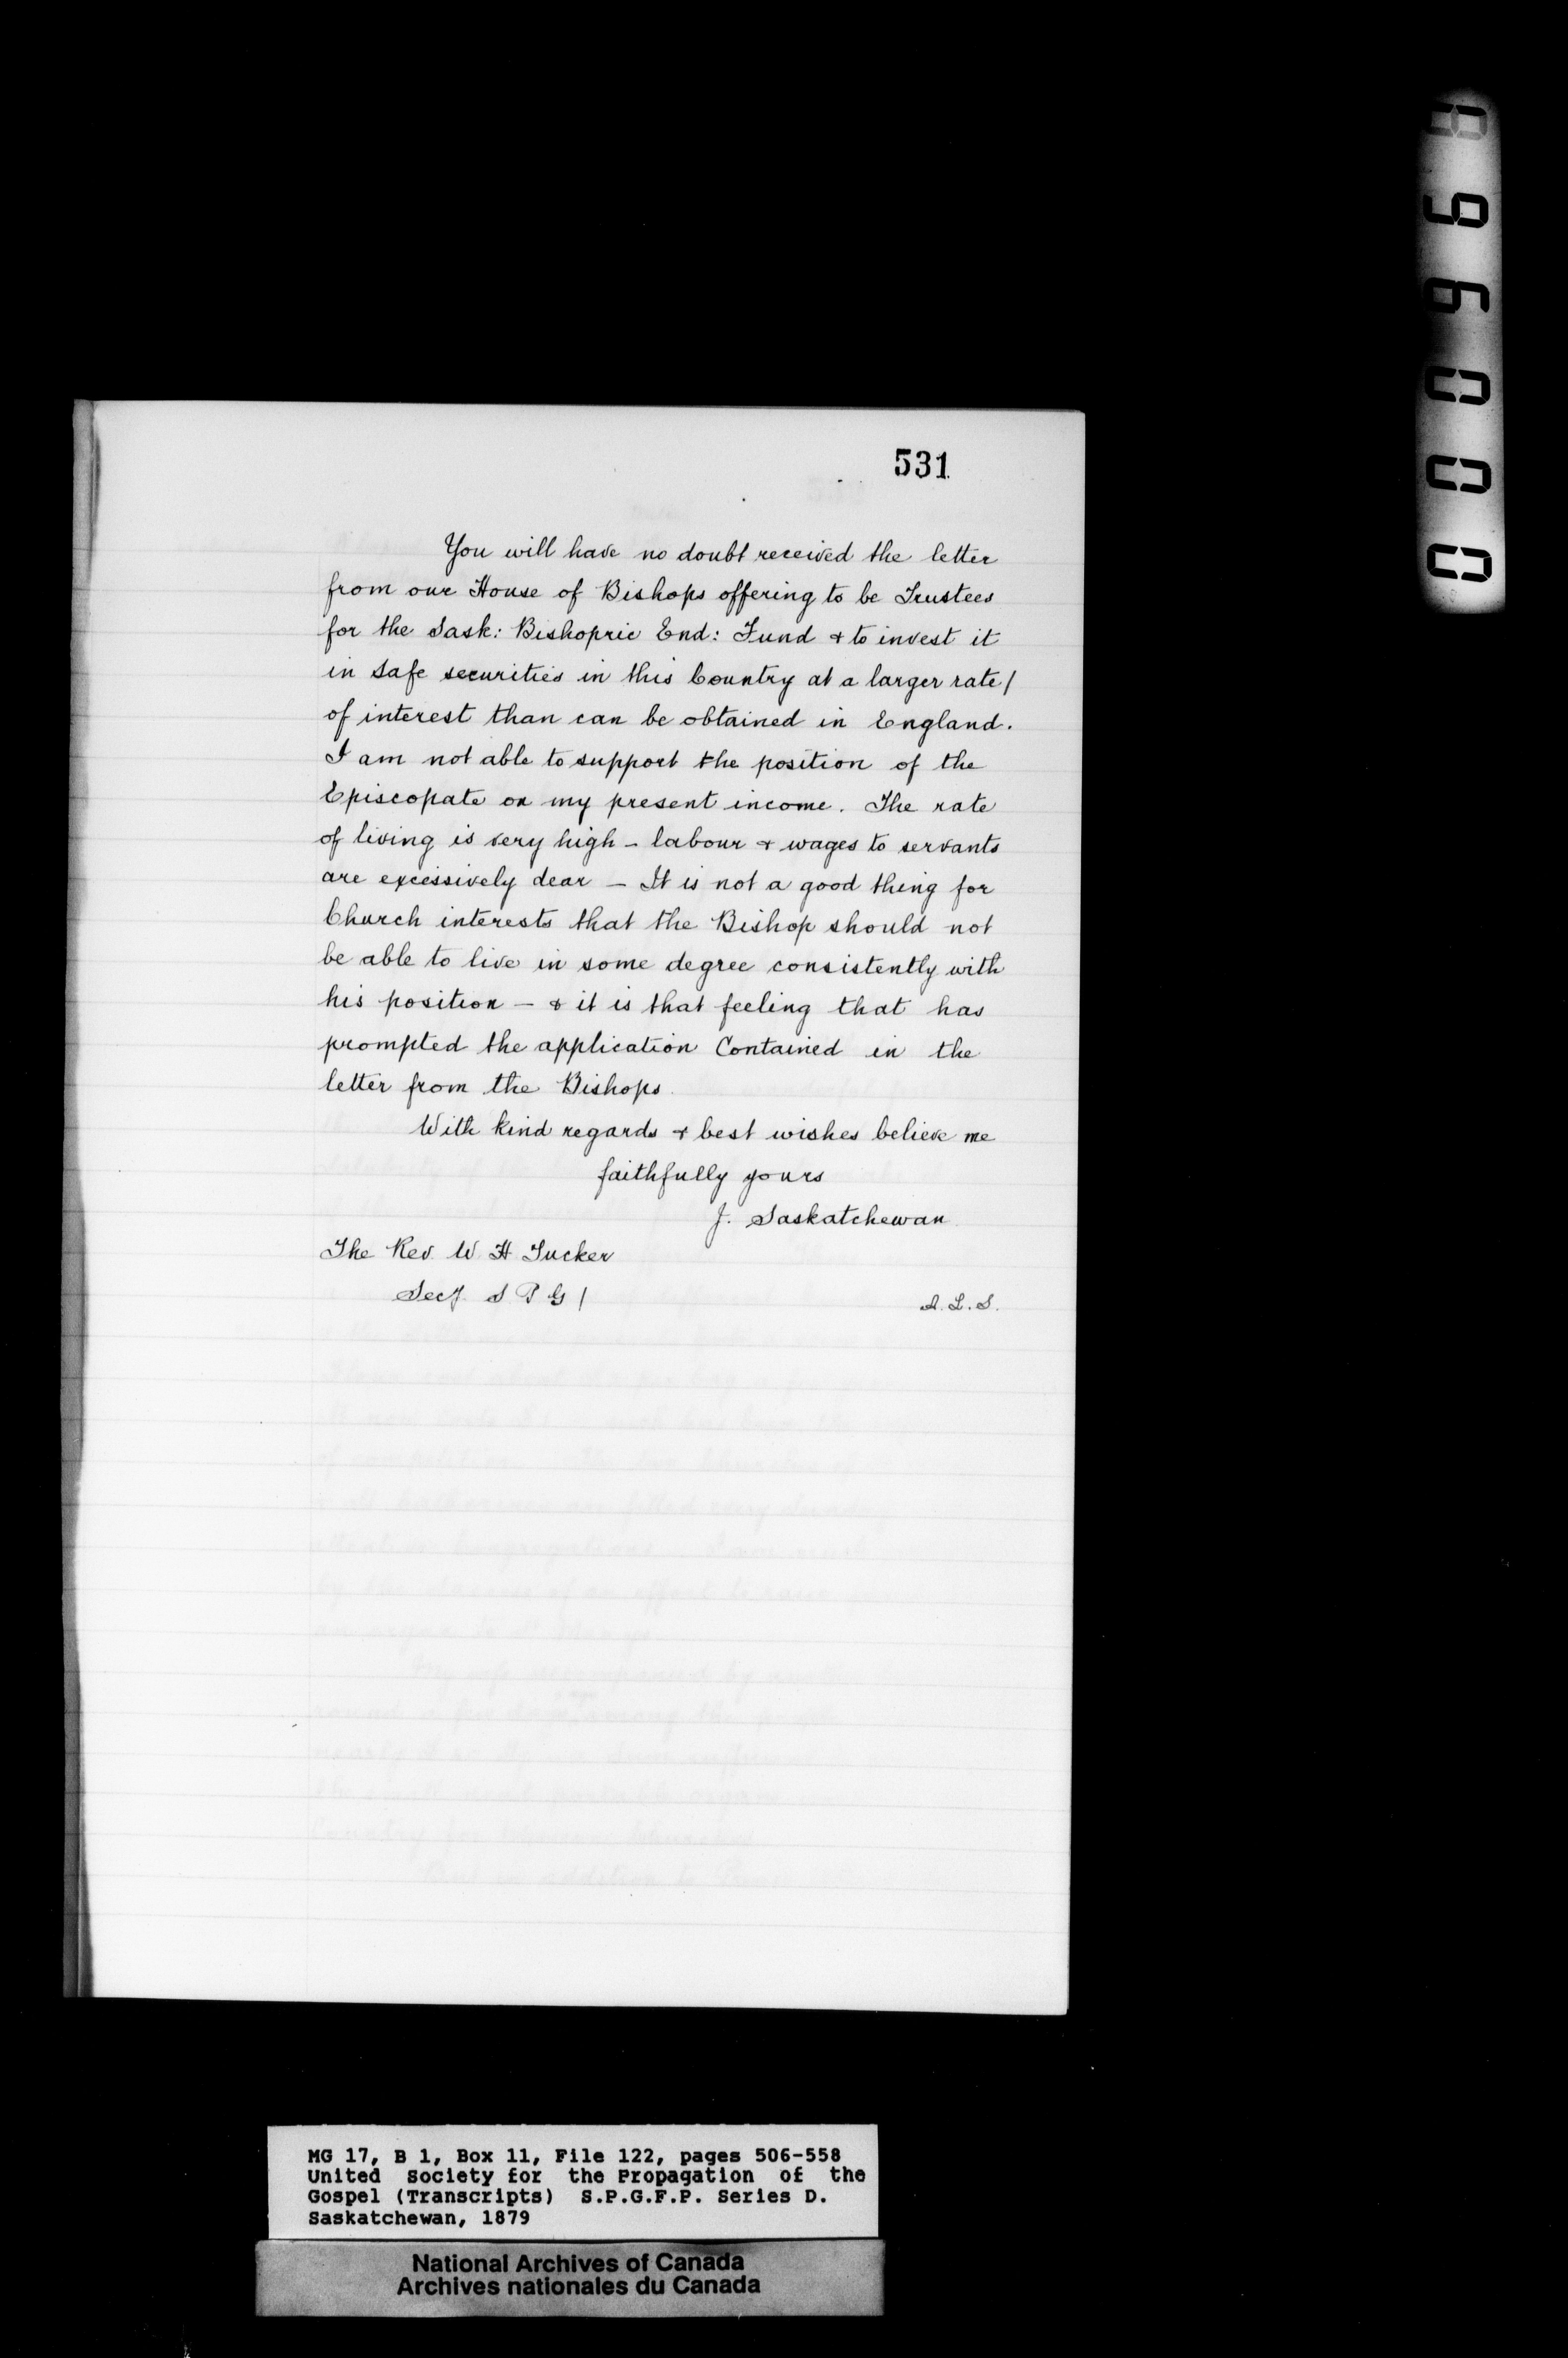 531
You will have no doubt received the letter
from our House of Bishops offering to be Trustees
for the Sask: Bishopric End: Fund & to invest it
in safe securities in this Country at a larger rate/
of interest than can be obtained in England.
I am not able to support the position of the
Episcopate on my present income. The rate
of living is very high - labour & wages to servants
are excessively dear - It is not a good thing for
Church interests that the Bishop should not
be able to live in some degree consistently with
his position - & it is that feeling that has
prompted the application Contained in the
letter from the Bishops.
With kind regards & best wishes believe me
faithfully yours
J. Saskatchewan
The Rev. W. H Tucker
Secy S P G /
A. L. S.
MG 17, B 1, Box 11, File 122, pages 506-558
United Society for the Propagation of the
Gospel (Transcripts) S.P.G.F.P. Series D.
Saskatchewan, 1879
National Archives of Canada
Archives nationales du Canada